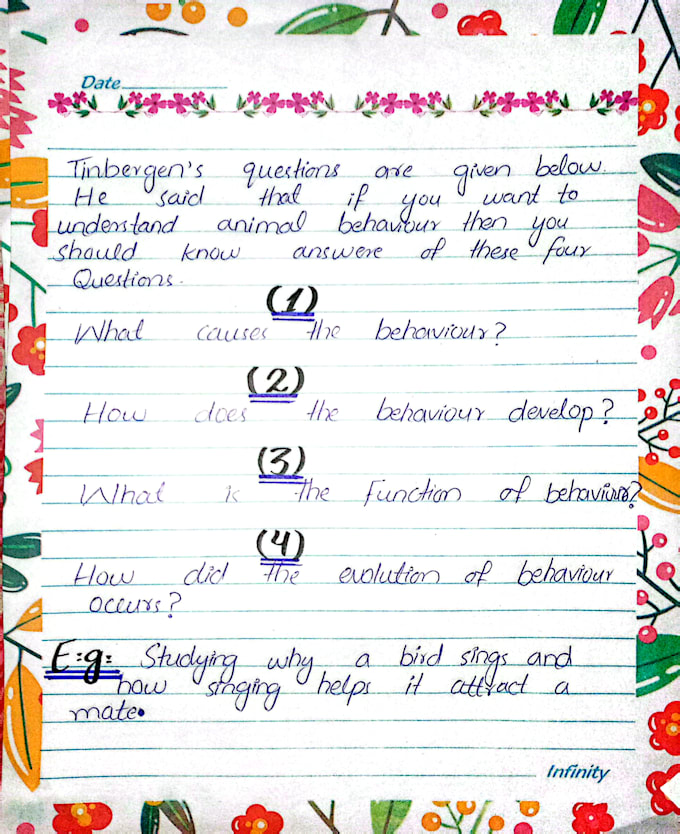 Date
Tinbergen's questions are given below.
He said that if you want to
understand animal behaviour then you
should know answere of these four
Questions.
(1)
What causes the behaviour?
(2)
How does the behaviour develop?
(3)
What is the function of behaviour?
(4)
How did the evolution of behaviour
occurs?
E:g: Studying why a bird sings and
how singing helps it attract a
mate.
Infinity